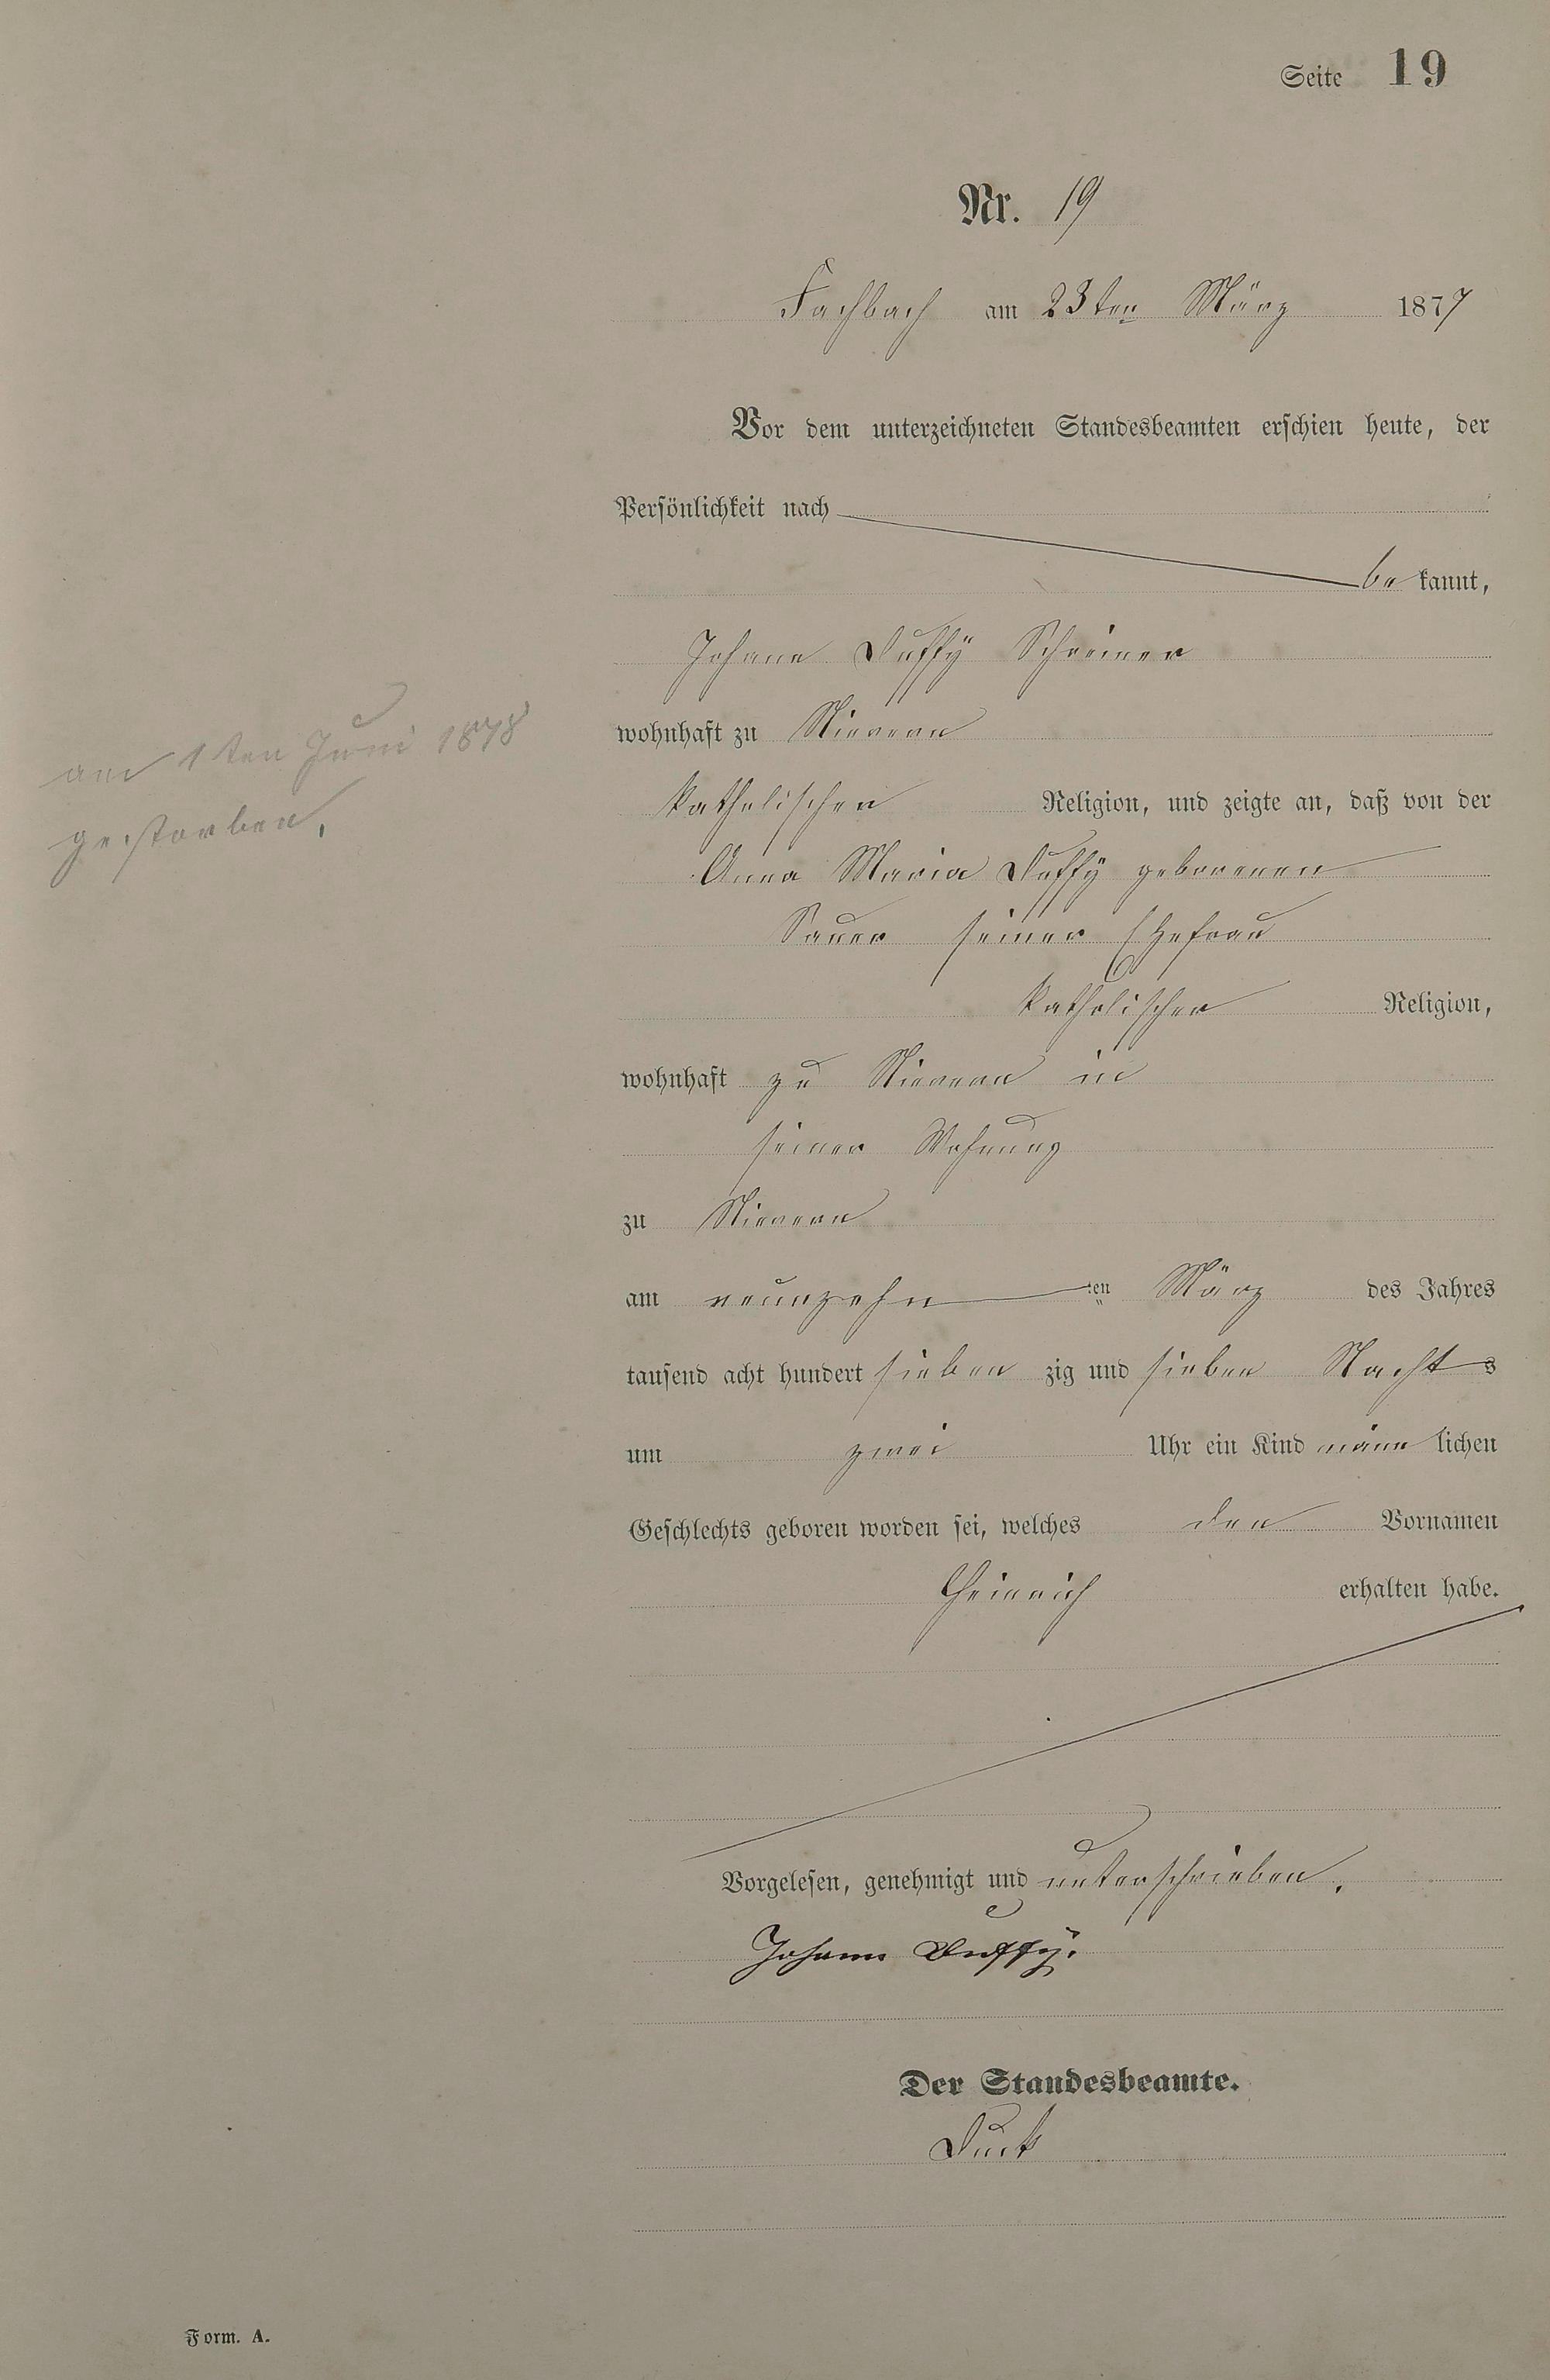 Seite 19
Nr. 19
Fachbach am 23ten März 1877
Vor dem unterzeichneten Standesbeamten erschien heute, der
Persönlichkeit nach
be kannt,
Johann Duffÿ Schreiner
wohnhaft zu Nievern
katholischer Religion, und zeigte an, daß von der
Anna Maria Duffÿ geborenen
Sauer seiner Ehefrau
katholischer Religion,
wohnhaft zu Nievern in
seiner Wohnung
zu Nievern
am neunzehn ten März des Jahres
tausend acht hundert sieben zig und sieben Nachts
um zwei Uhr ein Kind männ lichen
Geschlechts geboren worden sei, welches den Vornamen
Heinrich erhalten habe.
Vorgelesen, genehmigt und unterschrieben.
Johann Duffÿ.
Der Standesbeamte.
am 1ten Juni 1878
gestorben.
Form. A.